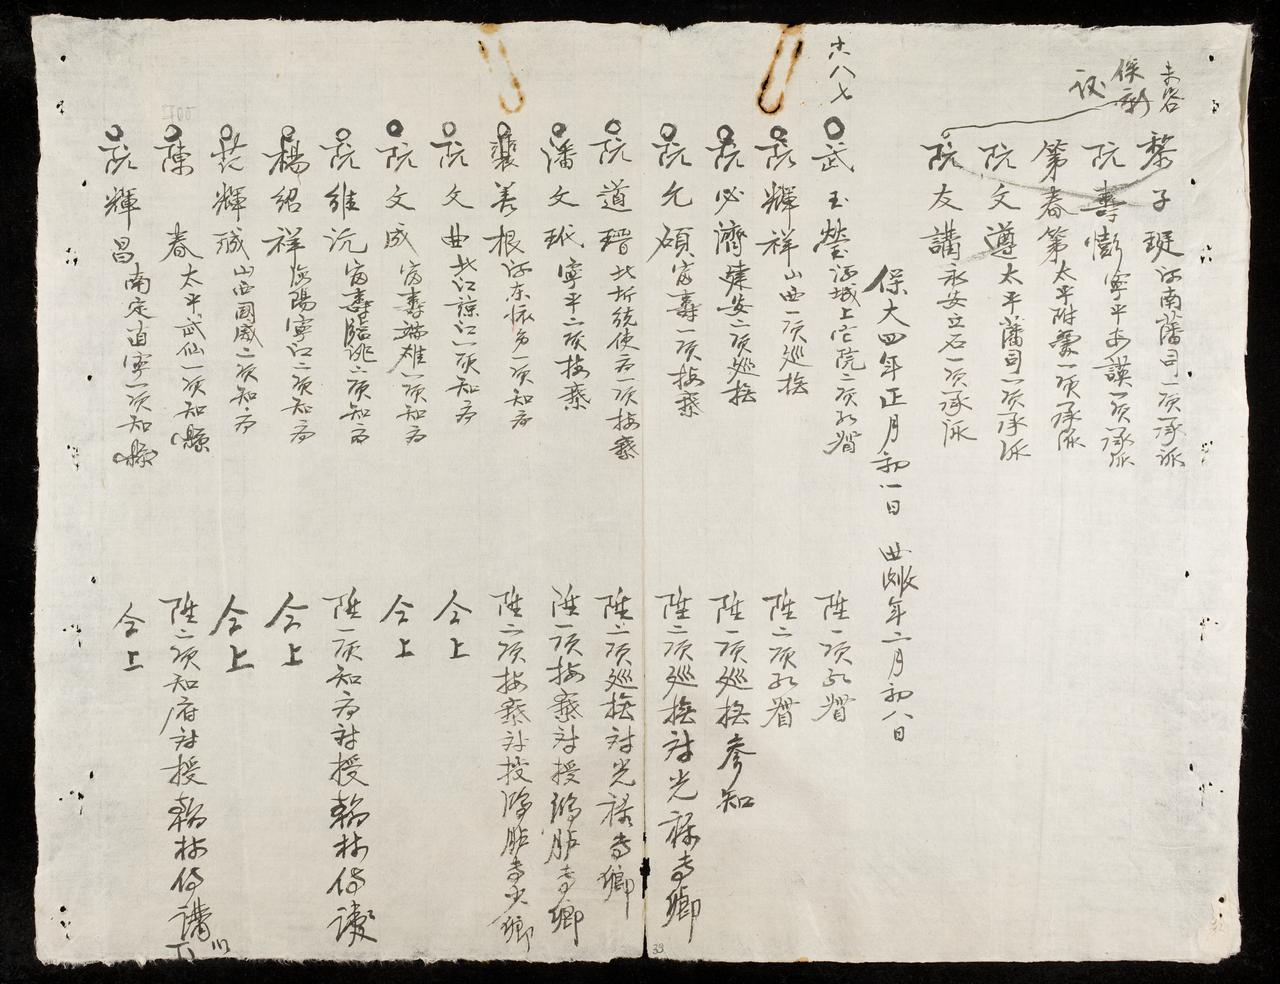 未咨
保新
黎子珽河南藩司一項承派
阮壽澎寧平安謨一項承派
太平附一項承派
阮文遵太平藩司一項承派
阮友講永安立石一項承派
保大四年正月初八日
年二月初八日
六八七
武玉瑩河城上院二項總督
陞一項總督
阮輝祥山西一項巡撫
陞二項總督
阮必濟建安二項巡撫
陞一項巡撫參知
阮允碩富壽一項按察
陞二項巡撫討光祿寺卿
阮道瑨北圻統使府一項按察
陞二項巡撫討光祿寺卿
潘文玳寧平二項按察
陞一項按察討授鴻臚寺卿
裴善根河東懷多一項知府
陞二項按察討授鴻臚寺少卿
阮文曲北江諒江一項知府
仝上
阮文成富壽雄一項知府
仝上
阮維沆富壽臨洮二項知府
陞一項知府討授翰林侍讀
楊紹祥海陽寧江二項知府
仝上
范輝瑊山西國威二項知府
仝上
陳春太平武仙一項知縣
陞二項知府討授翰林侍講
阮輝昌南定直寧一項知縣
仝上
33